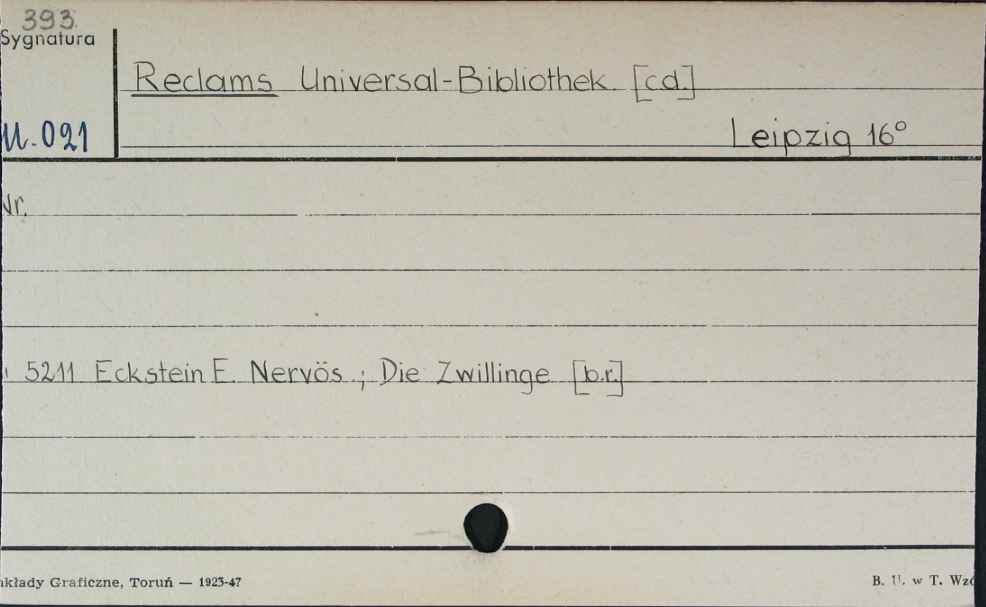 393.
Sygnatura
Reclams Universal-Bibliothek. [c.d.]
U.021
Leipzig 16°
Nr.
5211 Eckstein E. Nervös.; Die Zwillinge [b.r.]
akłady Graficzne, Toruń — 1923-47
B. U. w T. Wzó